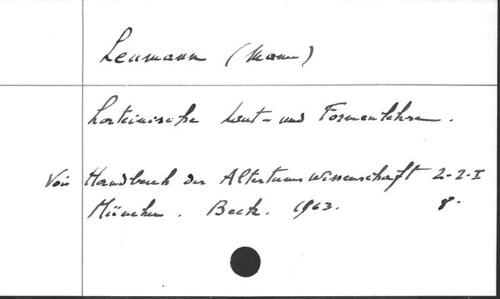 Leumann (Manu)
Lateinische Laut- und Formenlehre.
Voir Handbuch der Altertumswissenschaft 2-2-I
München. Beck. 1963. 8°